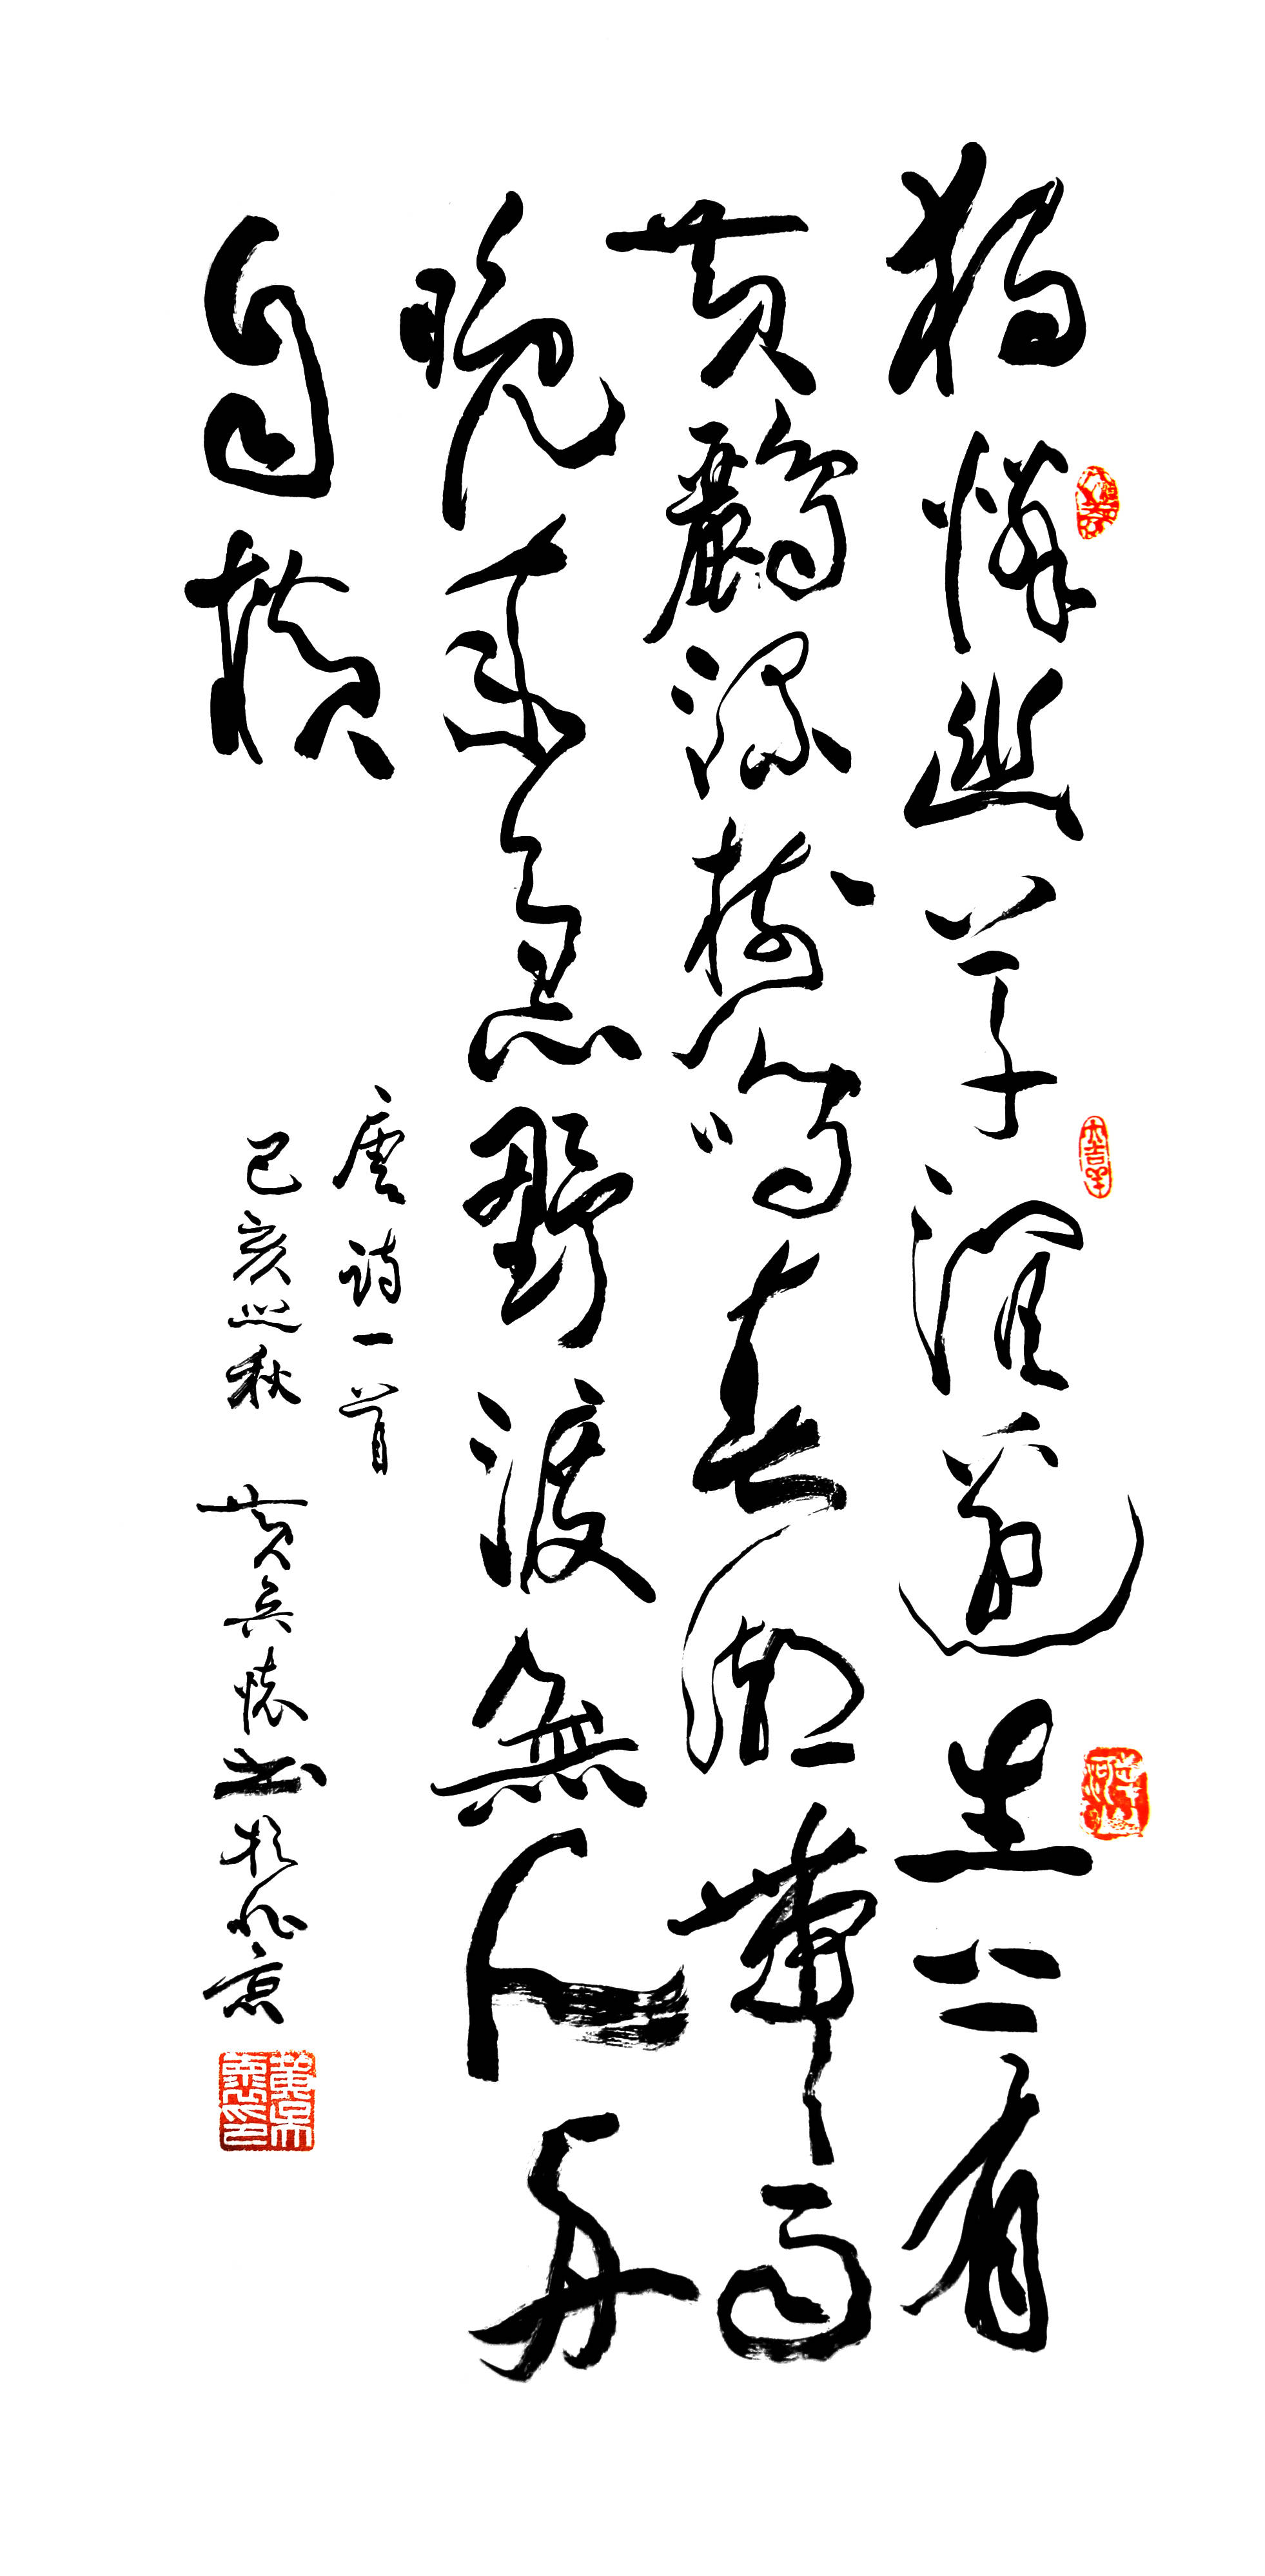 獨憐幽草澗邊生上有
黄鸝深樹鳴春潮帶雨
晚來急野渡無人舟
自横
唐詩一首
己亥之秋 黄吴懷書於北京
大吉羊